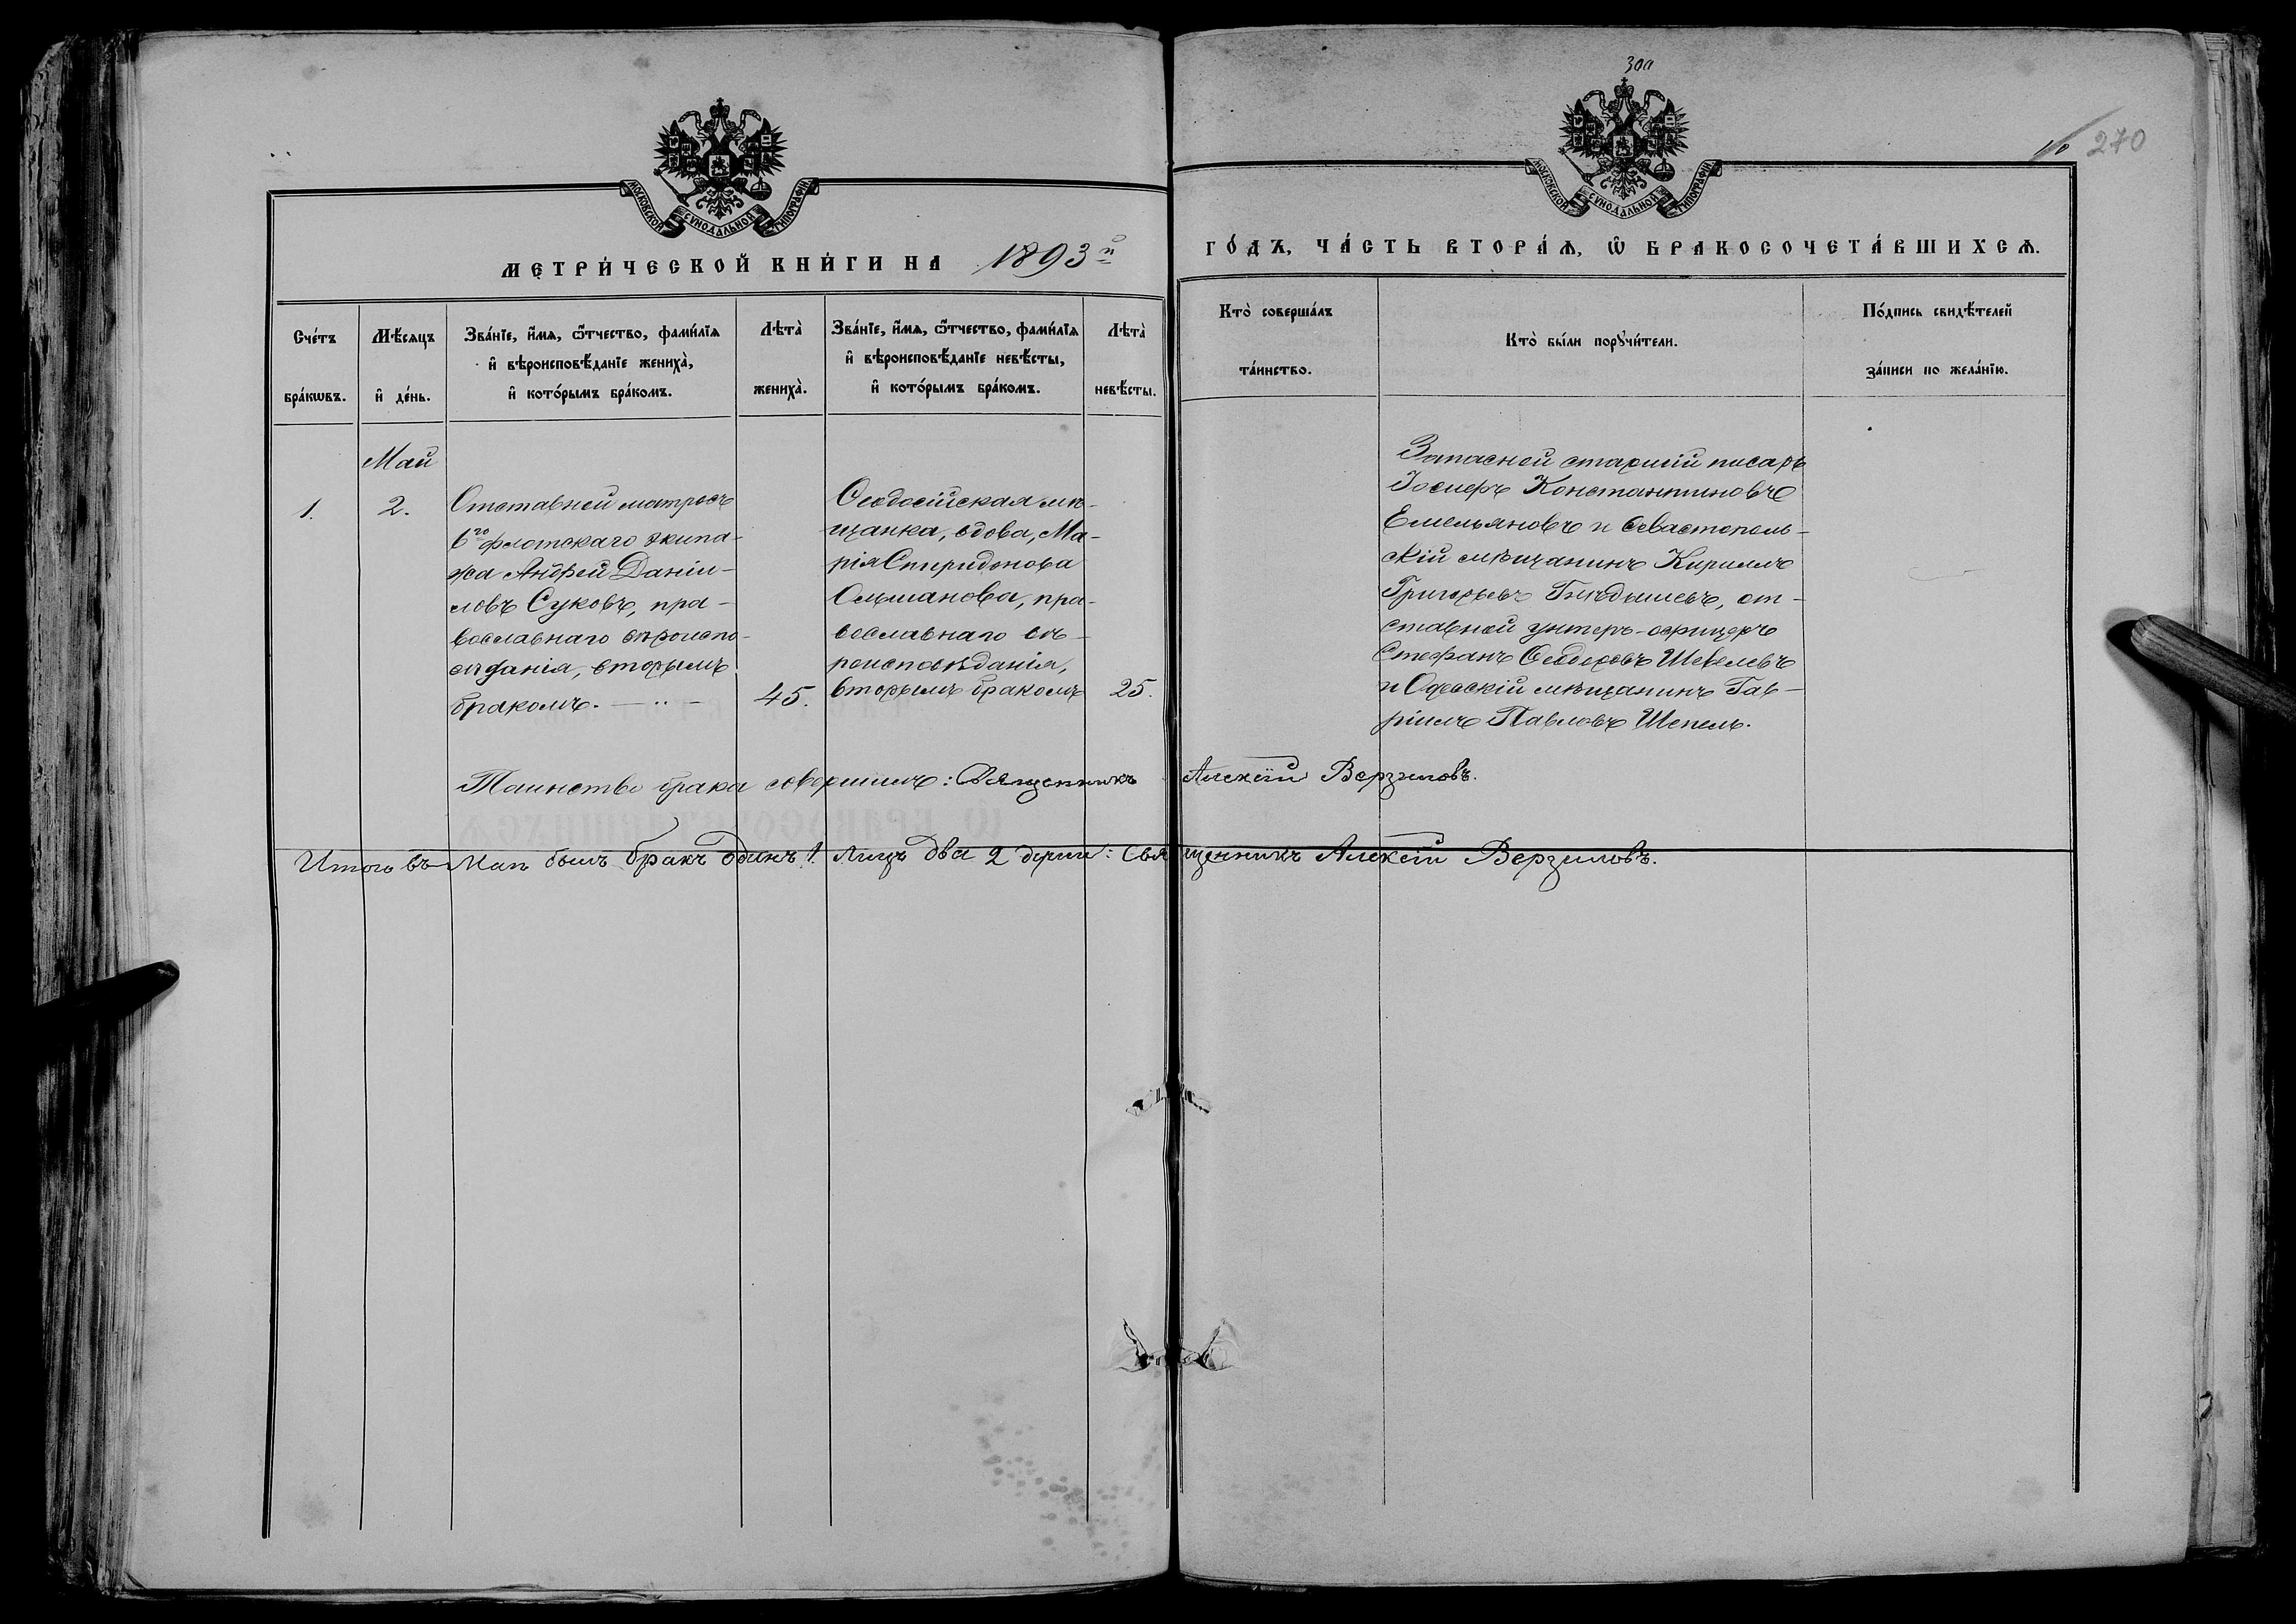 30а
270
МОСКОВСКОЙ СѴНОДАЛЬНОЙ ТИПОГРАФІИ
МОСКОВСКОЙ СѴНОДАЛЬНОЙ ТИПОГРАФІИ
МЕТРИ́ЧЕСКОЙ КНИ́ГИ НА 1893й
ГО́ДЪ, ЧА́СТЬ ВТОРА́Ѧ, Ѡ҆ БРАКОСОЧЕТА́ВШИХСѦ.
Сче́тъ бра́кѡвъ.
Мѣ́сѧцъ и҆ де́нь.
Зва́нїе, и҆́мѧ, ѻ҆́тчество, фами́лїѧ
и҆ вѣроисповѣ́данїе жениха̀,
и҆ кото́рымъ бра́комъ.
Лѣта̀ жениха̀.
Зва́нїе, и҆́мѧ, ѻ҆́тчество, фами́лїѧ
и҆ вѣроисповѣ́данїе невѣ́сты,
и҆ кото́рымъ бра́комъ.
Лѣта̀ невѣ́сты.
Кто̀ соверша́лъ
та́инство.
Кто̀ бы́ли порꙋчи́тели.
По́дпись свидѣ́телей
за́писи по жела́нїю.
Май
1.
2.
Отставной матросъ
6го флотскаго экипа-
жа Андрей Даніи-
ловъ Суковъ, пра-
вославнаго вѣроиспо-
вѣданія, вторымъ
бракомъ.
45.
Ѳеодосійская мѣ-
щанка, вдова, Ма-
рія Спиридонова
Ольшанова, пра-
вославнаго вѣ-
роисповѣданія,
вторымъ бракомъ
25.
Запасной старшій писарь
Іосифъ Константиновъ
Емельяновъ и Севастополь-
скій мѣщанинъ Кириллъ
Григорьевъ от-
ставной унтеръ-офицеръ
Стефанъ Ѳеодоровъ Шевелевъ
и Одесскій мѣщанинъ Гав-
ріилъ Павловъ Шепель.
Таинство брака совершилъ: Священникъ Алексій Верзиловъ.
Итого въ Маѣ былъ бракъ одинъ 1. Лицъ два 2 Священникъ Алексій Верзиловъ.